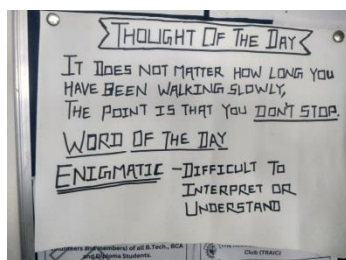 THOUGHT OF THE DAY
IT DOES NOT MATTER HOW LONG YOU
HAVE BEEN WALKING SLOWLY,
THE POINT IS THAT YOU DON'T STOP.
WORD OF THE DAY
ENIGMATIC - DIFFICULT TO
INTERPRET OR
UNDERSTAND
members) of all B.Tech., BCA
and Diploma Students.
Club (TRAIC)